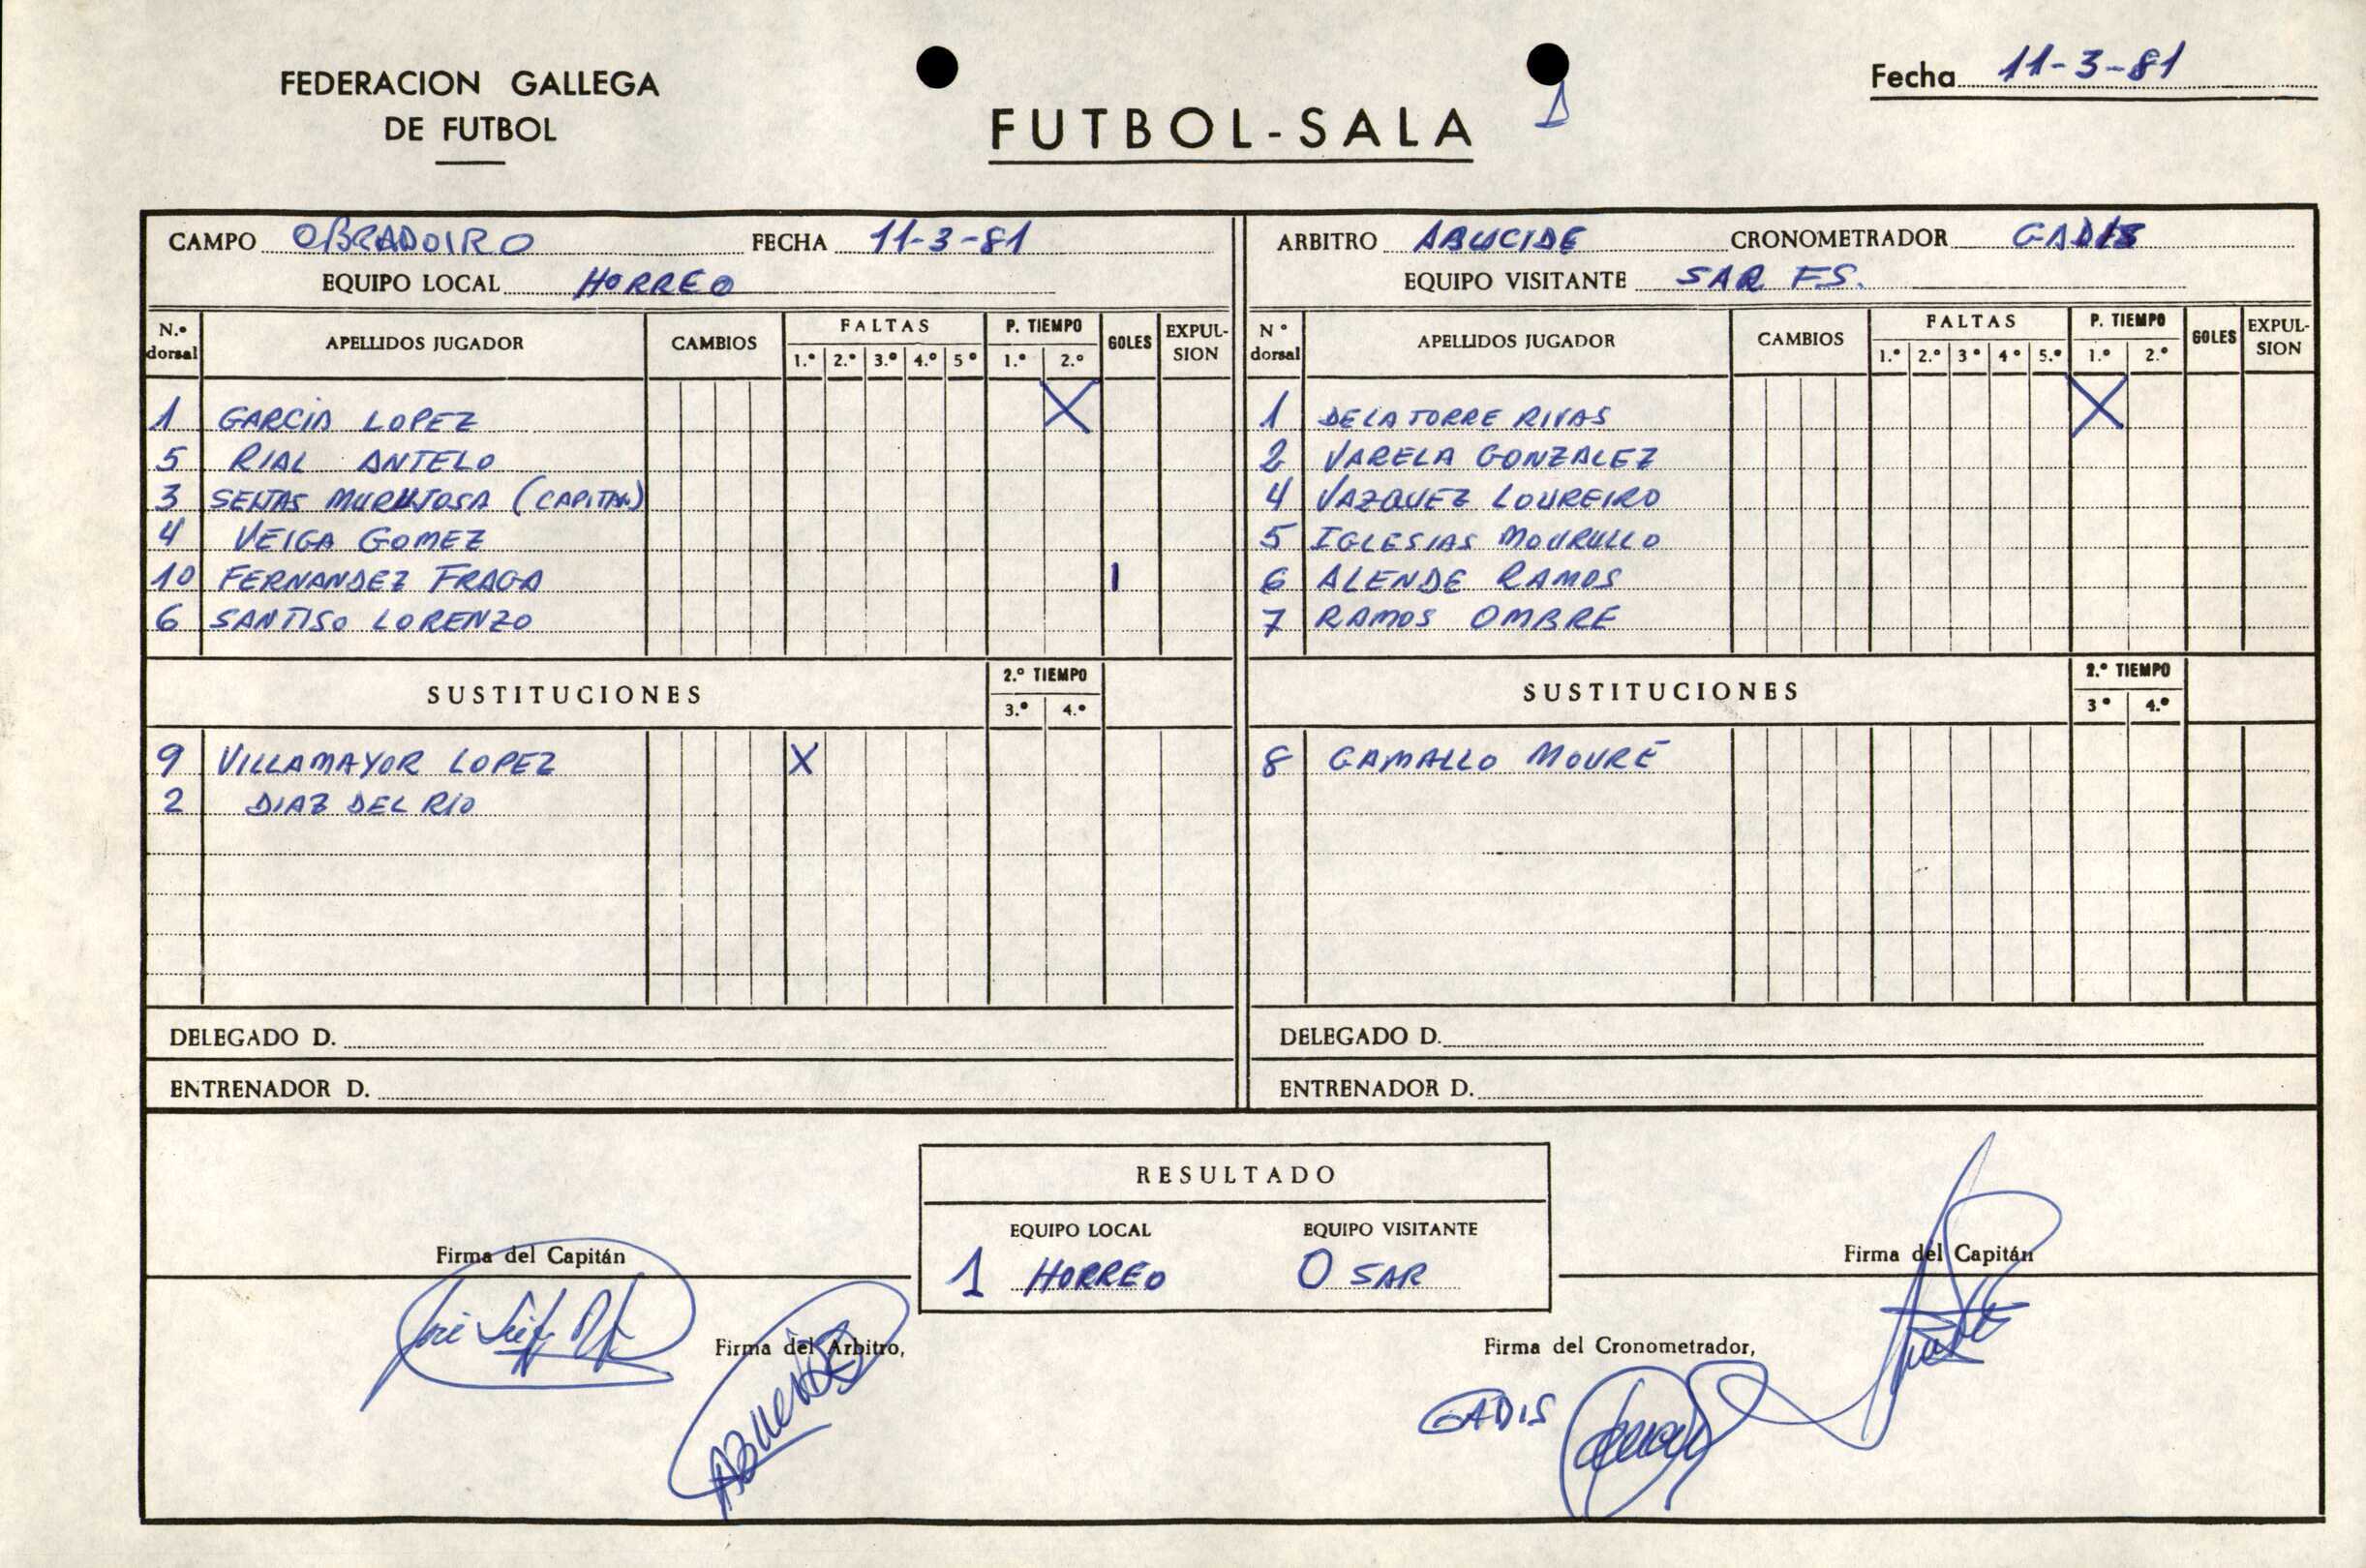 FEDERACION GALLEGA
DE FUTBOL
FUTBOL-SALA
Fecha 11-3-81
CAMPO OBRADOIRO FECHA 11-3-81
EQUIPO LOCAL HORREO
N.º dorsal APELLIDOS JUGADOR CAMBIOS FALTAS 1.º 2.º 3.º 4.º 5º P. TIEMPO 1.º 2.º GOLES EXPUL-SION
1 GARCIA LOPEZ X
5 RIAL ANTELO
3 SEIJAS (CAPITAN)
4 VEIGA GOMEZ
10 FERNANDEZ FRAGA 1
6 SANTISO LORENZO
SUSTITUCIONES 2.º TIEMPO 3.º 4.º
9 VILLAMAYOR LOPEZ X
2 DIAZ DEL RIO
DELEGADO D.
ENTRENADOR D.
ARBITRO CRONOMETRADOR GADIS
EQUIPO VISITANTE SAR FS.
Nº dorsal APELLIDOS JUGADOR CAMBIOS FALTAS 1.º 2.º 3º 4º 5.º P. TIEMPO 1.º 2.º GOLES EXPUL-SION
1 DE LA TORRE RIVAS X
2 VARELA GONZALEZ
4 VAZQUEZ LOUREIRO
5 IGLESIAS MOURULLO
6 ALENDE RAMOS
7 RAMOS OMBRE
SUSTITUCIONES 2.º TIEMPO 3º 4.º
8 GAMALLO MOURE
DELEGADO D.
ENTRENADOR D.
RESULTADO
EQUIPO LOCAL EQUIPO VISITANTE
1 HORREO 0 SAR
Firma del Capitán
Firma del Capitán
Firma del Arbitro,
Firma del Cronometrador,
GADIS